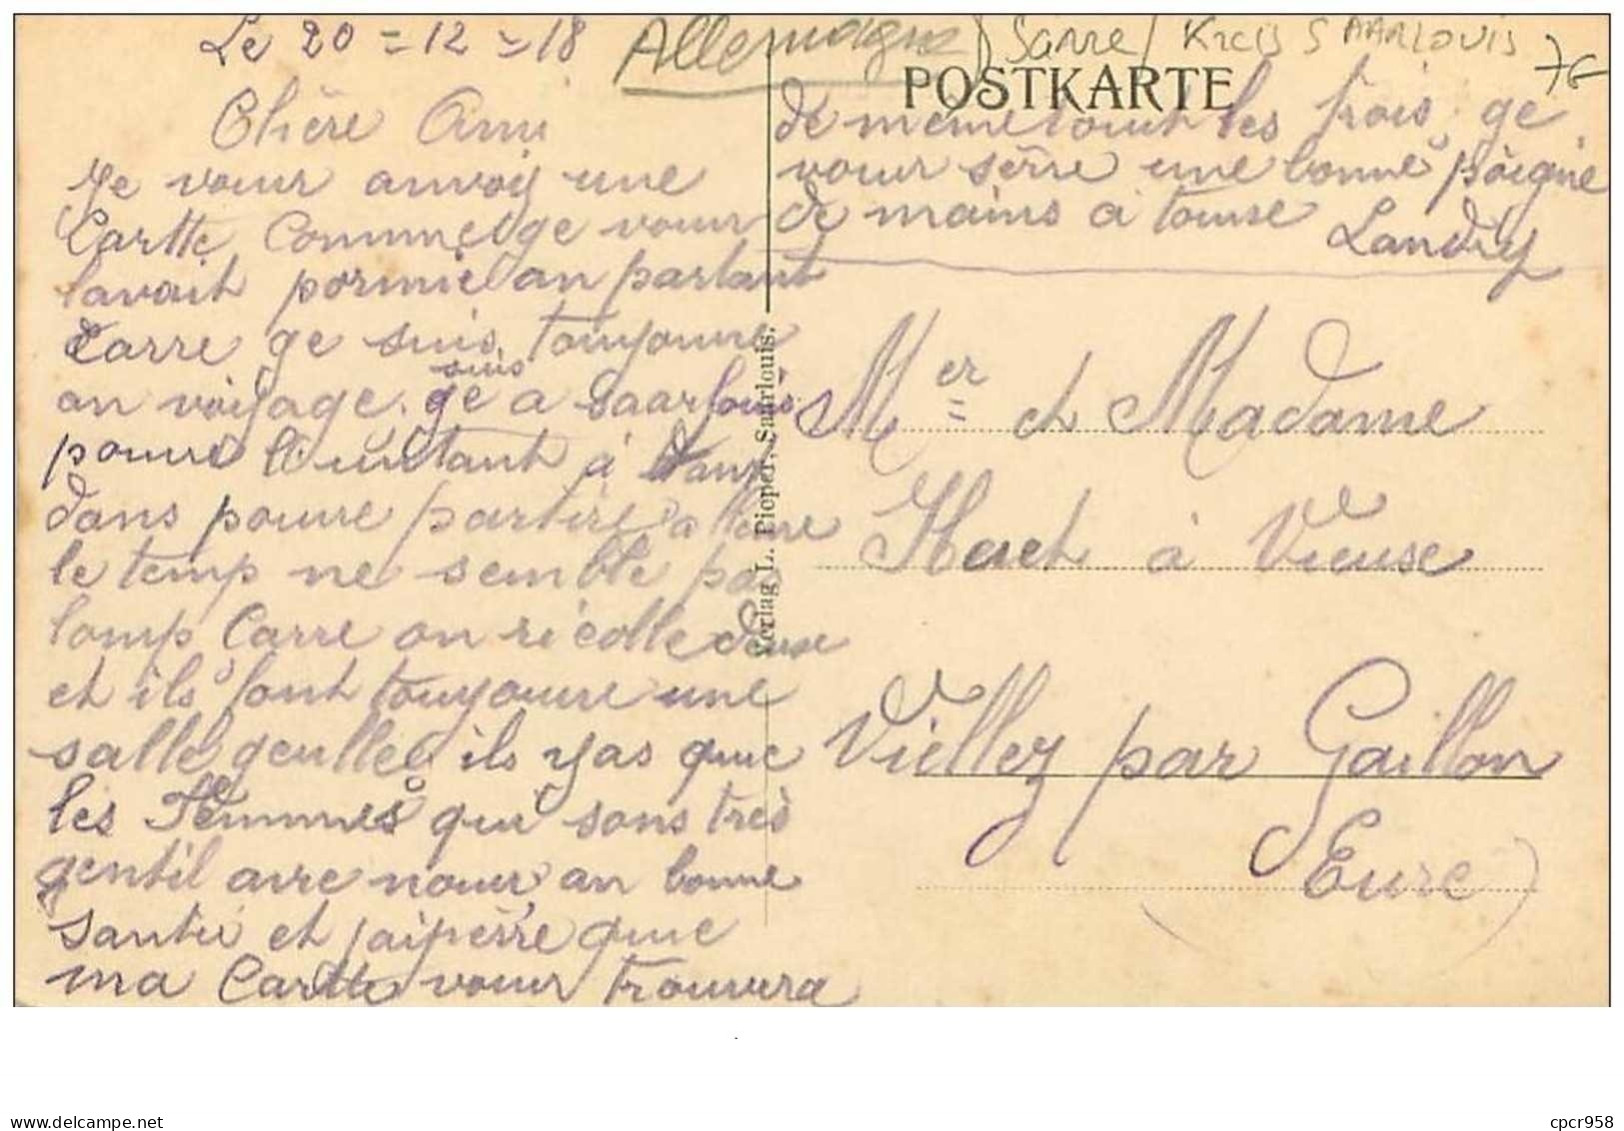 Le 20 = 12 = 18
Allemagne / Sarre / Kreis SAARLOUIS
7€
POSTKARTE
Chère Ami
Je vour anvoy une
Cartte Comme ge vour
lavait pormie an partant
Carre ge suis toujoure
an voyage. ge suis a Saarlouis
poure l'instant à
dans poure partire alleure
le temp ne semble pas
lomp Carre on ricolle deuse
et ils font toujoure une
salle geulle ils yas que
les Femmes qui sons très
gentil avre nour, an bonne
santée et jaipèrre que
ma Cartte vour trouvera
de meme tout les trois ge
vour serre une bonne poigné
de mains a touse Landry
Verlag L. Pieper, Saarlouis.
Mer et Madame
Huet à Vieuse
Viellez par Gaillon
(Eure)
delcampe.net
cpcr958